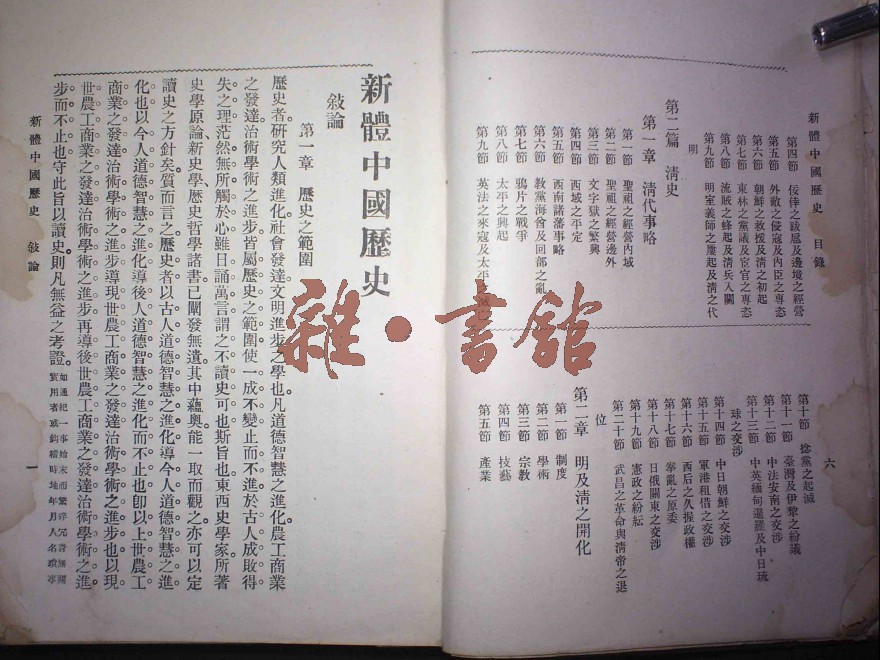 新體中國歷史 目錄
第四節 佞倖之跋扈及邊境之經營
第五節 外敵之侵寇及內臣之專恣
第六節 朝鮮之救援及清之初起
第七節 東林之黨議及宦官之專恣
第八節 流賊之蜂起及清兵入關
第九節 明室義師之屢起及清之代
明
第二篇 清史
第一章 清代事略
第一節 聖祖之經營內域
第二節 聖祖之經營邊外
第三節 文字獄之繁興
第四節 西域之平定
第五節 西南諸藩事略
第六節 教黨海會及回部之亂
第七節 鴉片之戰爭
第八節 太平之興起
第九節 英法之來寇及太平之滅
第十節 捻黨之起滅
第十一節 臺灣及伊犂之紛議
第十二節 中法安南之交涉
第十三節 中英緬甸暹羅及中日琉
球之交涉
第十四節 中日朝鮮之交涉
第十五節 軍港租借之交涉
第十六節 西后之久握政權
第十七節 拳亂之原委
第十八節 日俄關東之交涉
第十九節 憲政之紛紜
第二十節 武昌之革命與清帝之退
位
第二章 明及清之開化
第一節 制度
第二節 學術
第三節 宗教
第四節 技藝
第五節 產業
六
新體中國歷史
敍論
第一章 歷史之範圍
歷史者研究人類進化社會發達文明進步之學也凡道德智慧之進化農工商業
之發達治術學術之進步皆屬歷史之範圍使一成不變止而不進於古人成敗得
失之理茫然無所觸於心雖日誦萬言謂之不讀史可也斯旨也東西史學家所著
史學原論新史學、歷史哲學諸書已闡發無遺其中蘊奧能一取而觀之亦可以定
讀史之方針矣。質而言之。歷史者以古人道德智慧之進化導今人道德智慧之進
化也以今人道德智慧之進化導後人道德智慧之進化而不止也卽以上世農工
商業之發達治術學術之進步導現世農工商業之發達治術學術之進步也以現
世農工商業之發達治術學術之進步再導後世農工商業之發達治術學術之進
步而不止也守此旨以讀史則凡無益之考證。
新體中國歷史 敍論
一
雜·書館